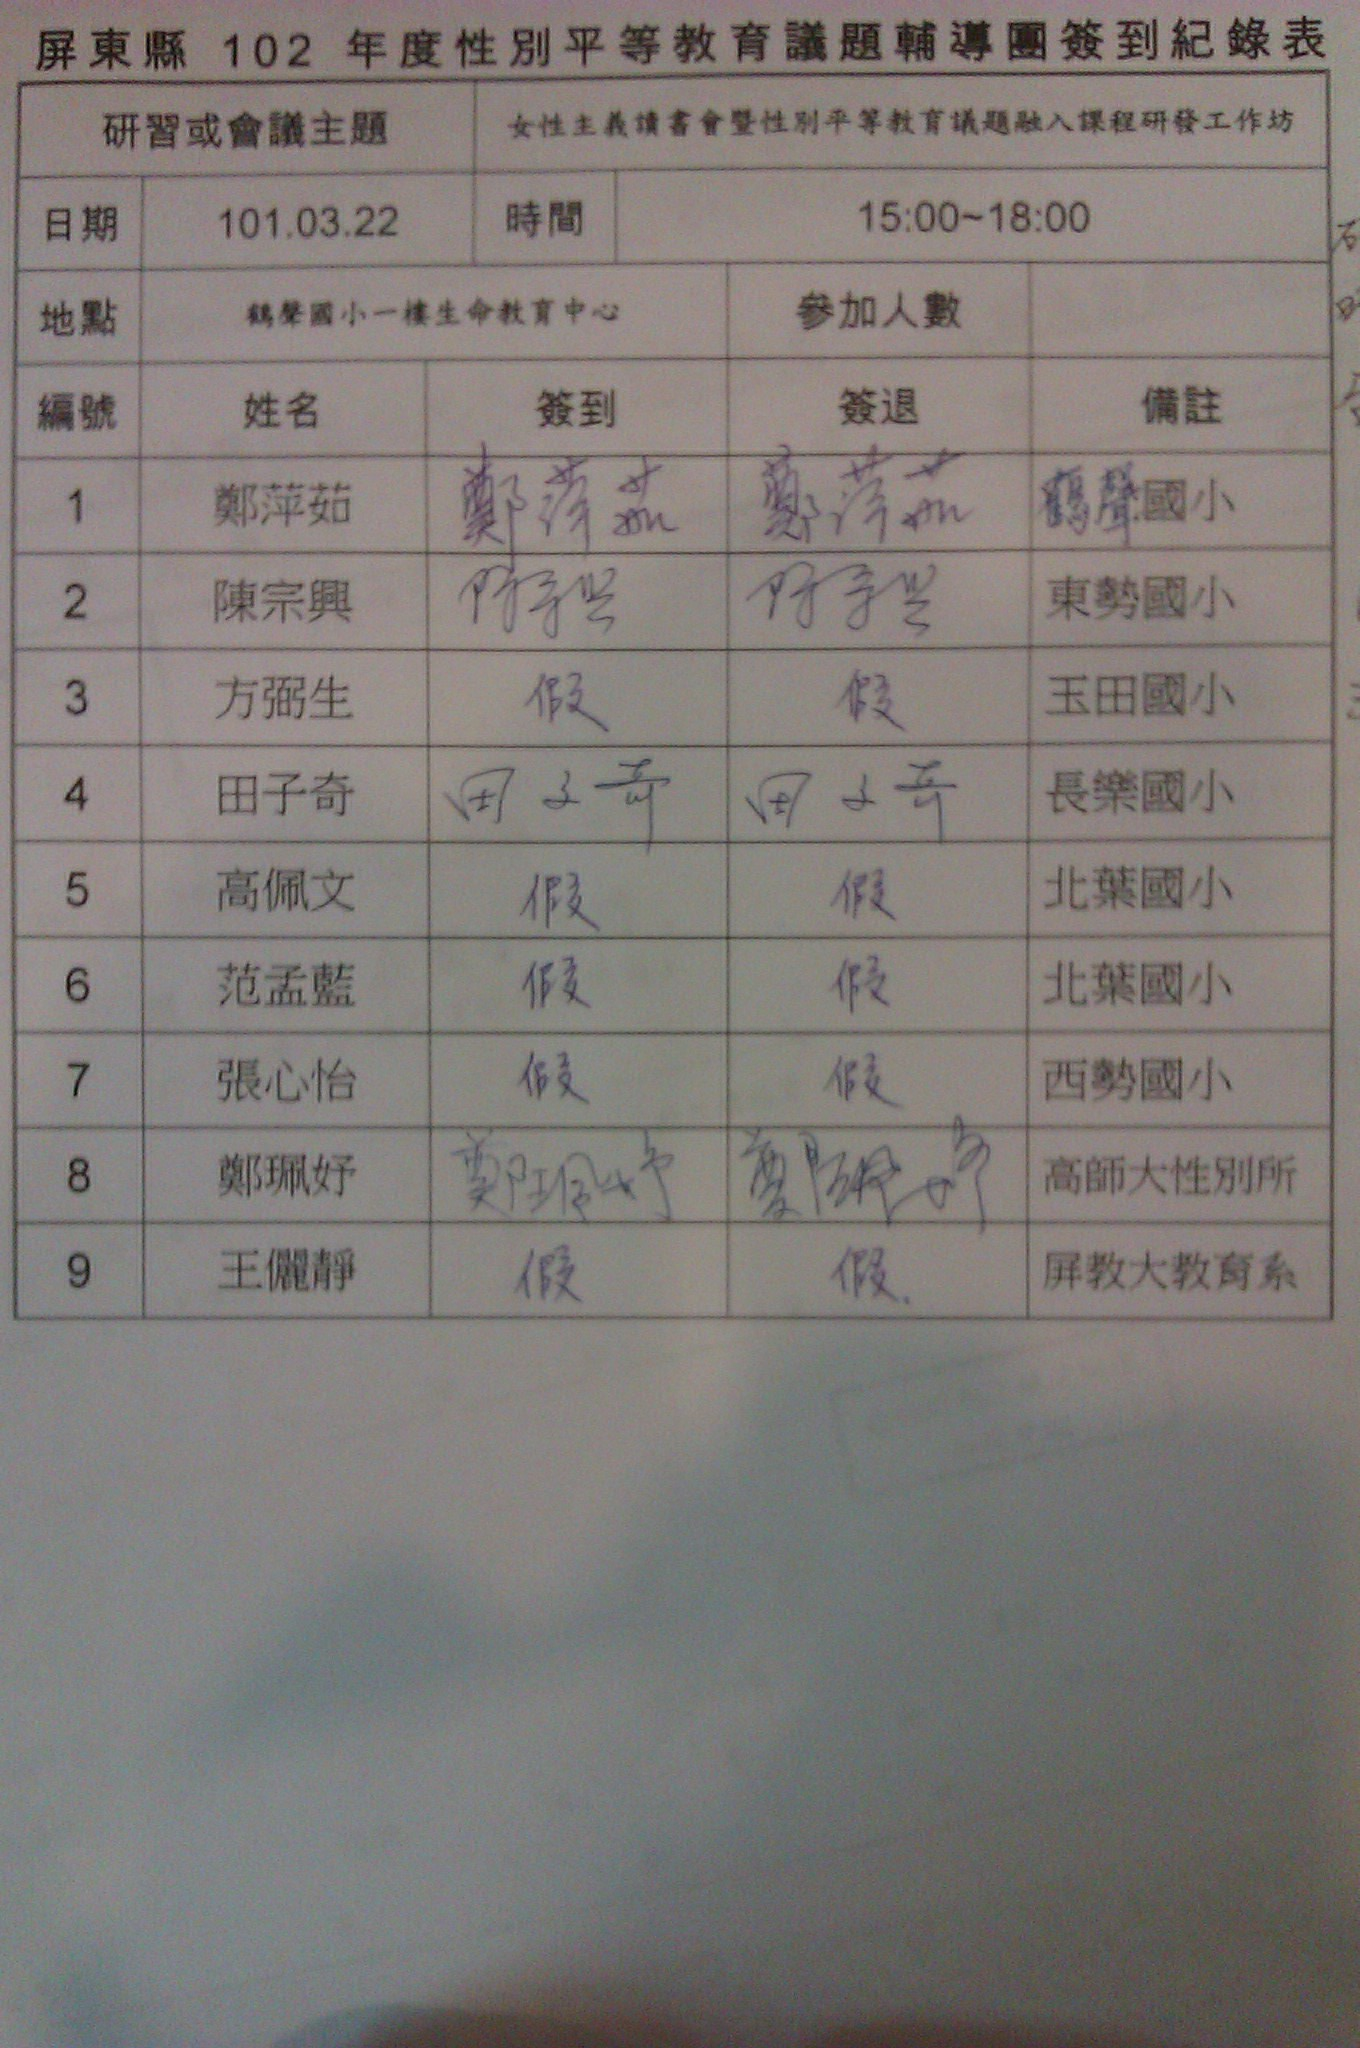 屏東縣 102 年度性別平等教育議題輔導團簽到紀錄表
研習或會議主題 女性主義讀書會暨性別平等教育議題融入課程研發工作坊
日期 101.03.22 時間 15:00~18:00
地點 鶴聲國小一樓生命教育中心 參加人數
編號 姓名 簽到 簽退 備註
1 鄭萍茹 鄭萍茹 鄭萍茹 鶴聲國小
2 陳宗興 陳宗興 陳宗興 東勢國小
3 方弼生 假 假 玉田國小
4 田子奇 田子奇 田子奇 長樂國小
5 高佩文 假 假 北葉國小
6 范孟藍 假 假 北葉國小
7 張心怡 假 假 西勢國小
8 鄭珮妤 鄭珮妤 鄭珮妤 高師大性別所
9 王儷靜 假 假. 屏教大教育系